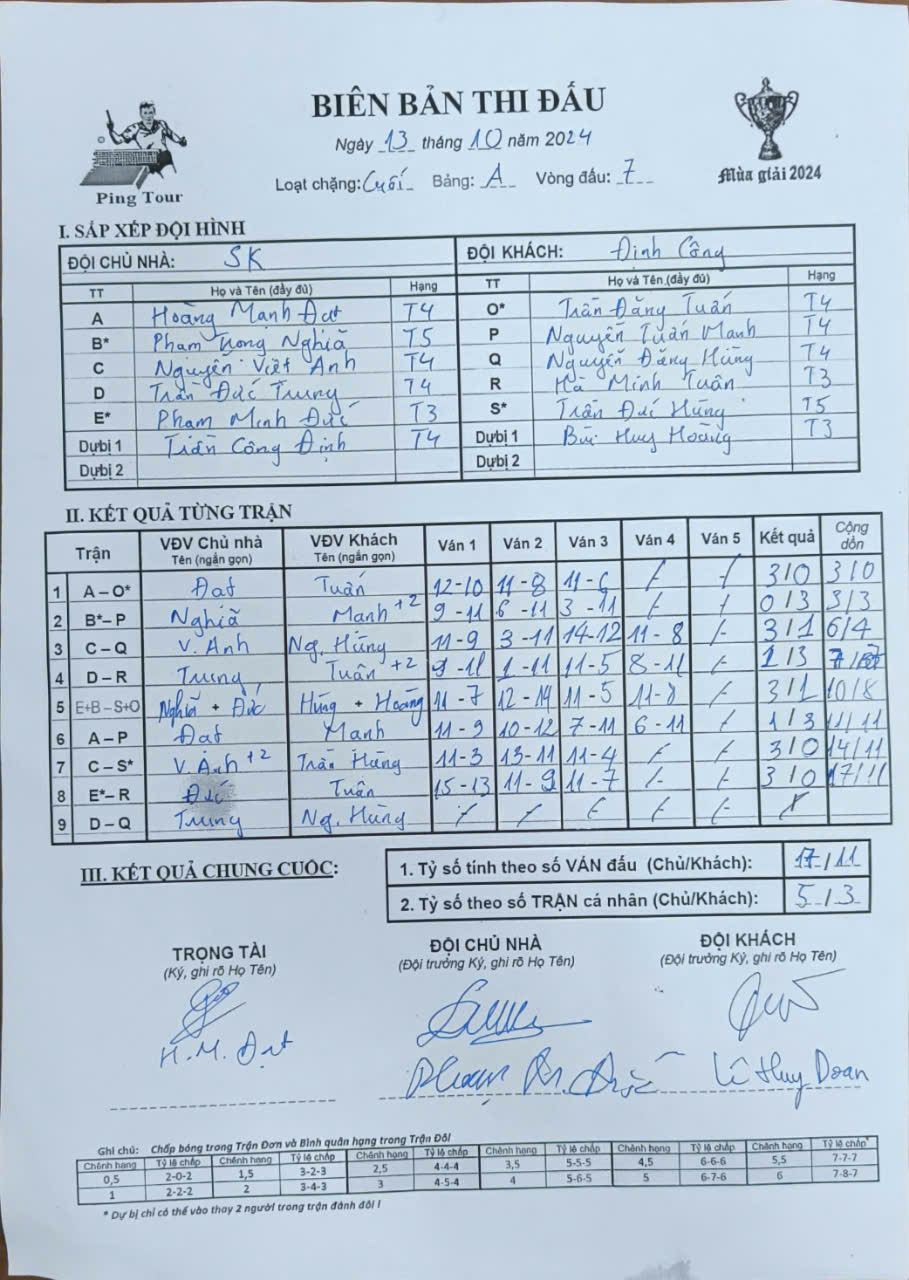 BIÊN BẢN THI ĐẤU
Ngày 13 tháng 10 năm 2024
Loạt chặng: Cuối Bảng: A Vòng đấu: 7
Ping Tour
Mùa giải 2024
I. SẮP XẾP ĐỘI HÌNH
ĐỘI CHỦ NHÀ: SK ĐỘI KHÁCH: Định Công
TT Họ và Tên (đầy đủ) Hạng TT Họ và Tên (đầy đủ) Hạng
A Hoàng Mạnh Đạt T4 O* Trần Đăng Tuấn T4
B* Phạm Trọng Nghĩa T5 P Nguyễn Tuấn Mạnh T4
C Nguyễn Việt Anh T4 Q Nguyễn Đăng Hùng T4
D Trần Đức Trung T4 R Hà Minh Tuân T3
E* Phạm Minh Đức T3 S* Trần Đức Hùng T5
Dự bị 1 Trần Công Định T4 Dự bị 1 Bùi Huy Hoàng T3
Dự bị 2 Dự bị 2
II. KẾT QUẢ TỪNG TRẬN
Trận VĐV Chủ nhà Tên (ngắn gọn) VĐV Khách Tên (ngắn gọn) Ván 1 Ván 2 Ván 3 Ván 4 Ván 5 Kết quả Cộng dồn
1 A – O* Đạt Tuấn 12-10 11-8 11-6 / / 3/0 3/0
2 B* – P Nghĩa Mạnh +2 9-11 6-11 3-11 / / 0/3 3/3
3 C – Q V. Anh Ng. Hùng 11-9 3-11 14-12 11-8 / 3/1 6/4
4 D – R Trung Tuân +2 9-11 1-11 11-5 8-11 / 1/3 7/7
5 E+B – S+O Nghĩa + Đức Hùng + Hoàng 11-7 12-14 11-5 11-8 / 3/1 10/8
6 A – P Đạt Mạnh 11-9 10-12 7-11 6-11 / 1/3 11/11
7 C – S* V. Anh +2 Trần Hùng 11-3 13-11 11-4 / / 3/0 14/11
8 E* – R Đức Tuân 15-13 11-9 11-7 / / 3/0 17/11
9 D – Q Trung Ng. Hùng / / / / / /
III. KẾT QUẢ CHUNG CUỘC:
1. Tỷ số tính theo số VÁN đấu (Chủ/Khách): 17/11
2. Tỷ số theo số TRẬN cá nhân (Chủ/Khách): 5/3
TRỌNG TÀI ĐỘI CHỦ NHÀ ĐỘI KHÁCH
(Ký, ghi rõ Họ Tên) (Đội trưởng Ký, ghi rõ Họ Tên) (Đội trưởng Ký, ghi rõ Họ Tên)
H.M. Đạt Phạm Đức Lê Huy Doan
Ghi chú: Chấp bóng trong Trận Đơn và Bình quân hạng trong Trận Đôi
Chênh hạng Tỷ lệ chấp Chênh hạng Tỷ lệ chấp Chênh hạng Tỷ lệ chấp Chênh hạng Tỷ lệ chấp Chênh hạng Tỷ lệ chấp Chênh hạng Tỷ lệ chấp
0,5 2-0-2 1,5 3-2-3 2,5 4-4-4 3,5 5-5-5 4,5 6-6-6 5,5 7-7-7
1 2-2-2 2 3-4-3 3 4-5-4 4 5-6-5 5 6-7-6 6 7-8-7
* Dự bị chỉ có thể vào thay 2 người trong trận đánh đôi !